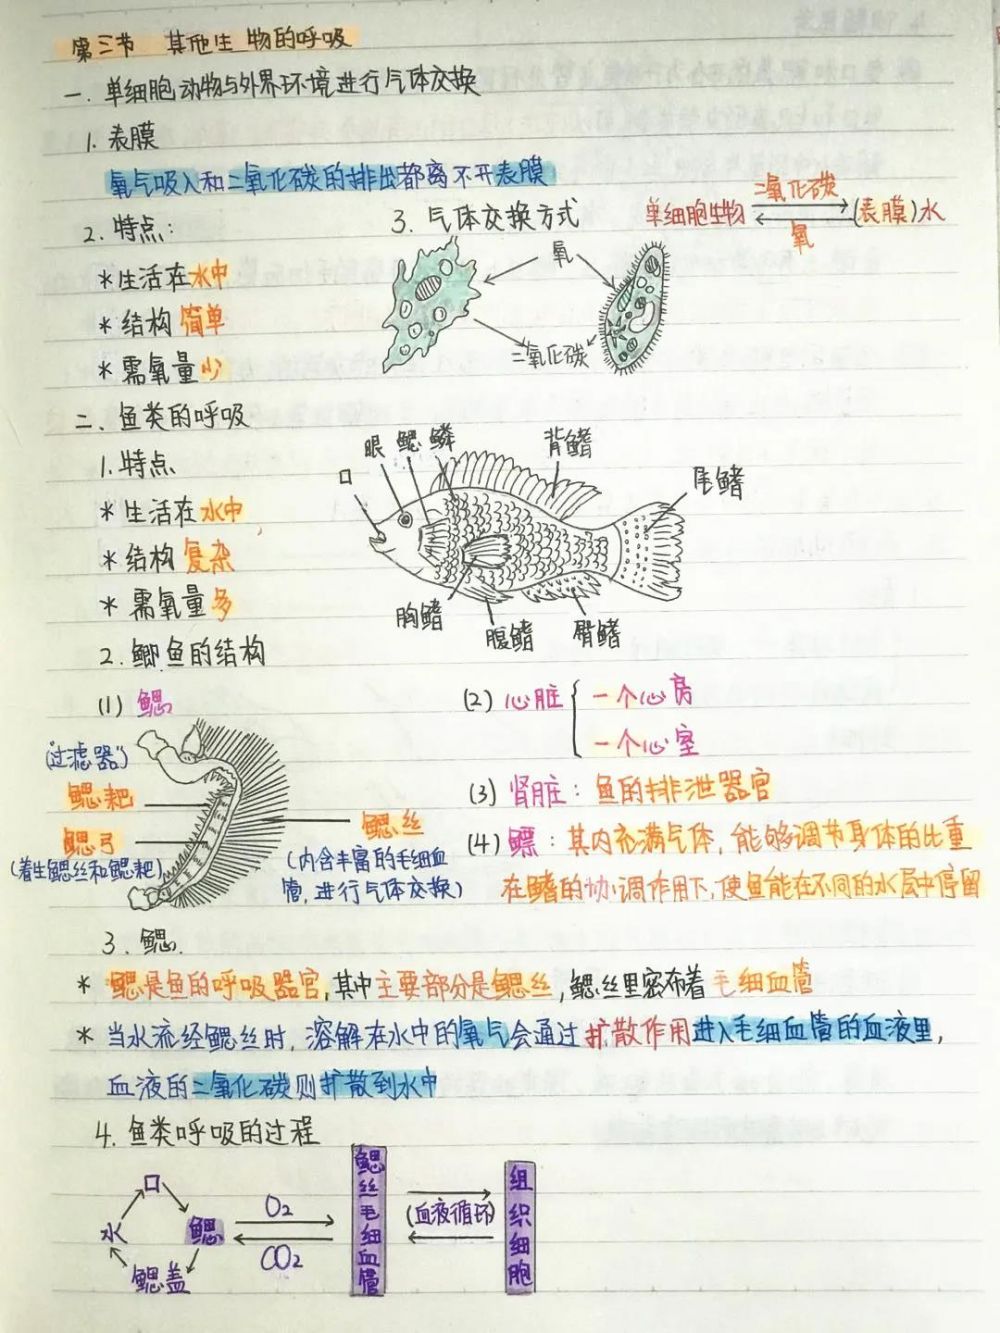 第三节 其他生物的呼吸
一. 单细胞动物与外界环境进行气体交换
1. 表膜
氧气吸入和二氧化碳的排出都离不开表膜
2. 特点:
*生活在水中
*结构简单
*需氧量少
3. 气体交换方式
单细胞生物 二氧化碳 氧 (表膜)水
氧
二氧化碳
二、鱼类的呼吸
1.特点
*生活在水中
*结构复杂
*需氧量多
口 眼 鳃 鳞 背鳍 尾鳍
胸鳍 腹鳍 臀鳍
2.鲫鱼的结构
(1) 鳃
(过滤器)
鳃耙
鳃弓
(着生鳃丝和鳃耙)
鳃丝
(内含丰富的毛细血
管,进行气体交换)
(2)心脏 一个心房
一个心室
(3)肾脏: 鱼的排泄器官
(4)鳔: 其内充满气体, 能够调节身体的比重
在鳍的协调作用下,使鱼能在不同的水层中停留
3. 鳃.
* 鳃是鱼的呼吸器官,其中主要部分是鳃丝,鳃丝里密布着毛细血管
* 当水流经鳃丝时, 溶解在水中的氧气会通过扩散作用进入毛细血管的血液里,
血液的二氧化碳则扩散到水中
4. 鱼类呼吸的过程
口
水
鳃
鳃盖
O2
CO2
鳃丝毛细血管
(血液循环)
组织细胞